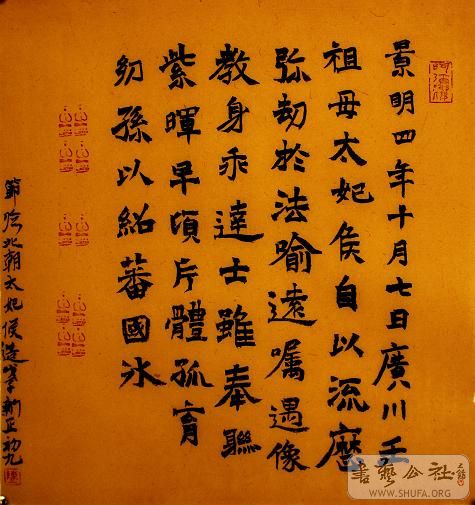 景明四年十月七日廣川王
祖母太妃侯自以流歷
弥劫於法喻遠囑遇像
教身乖達士雖奉聯
紫暉早頃片體孤育
幼孫以紹蕃國冰
節臨北朝太妃侯造 新正初九
書藝公社
WWW.SHUFA.ORG